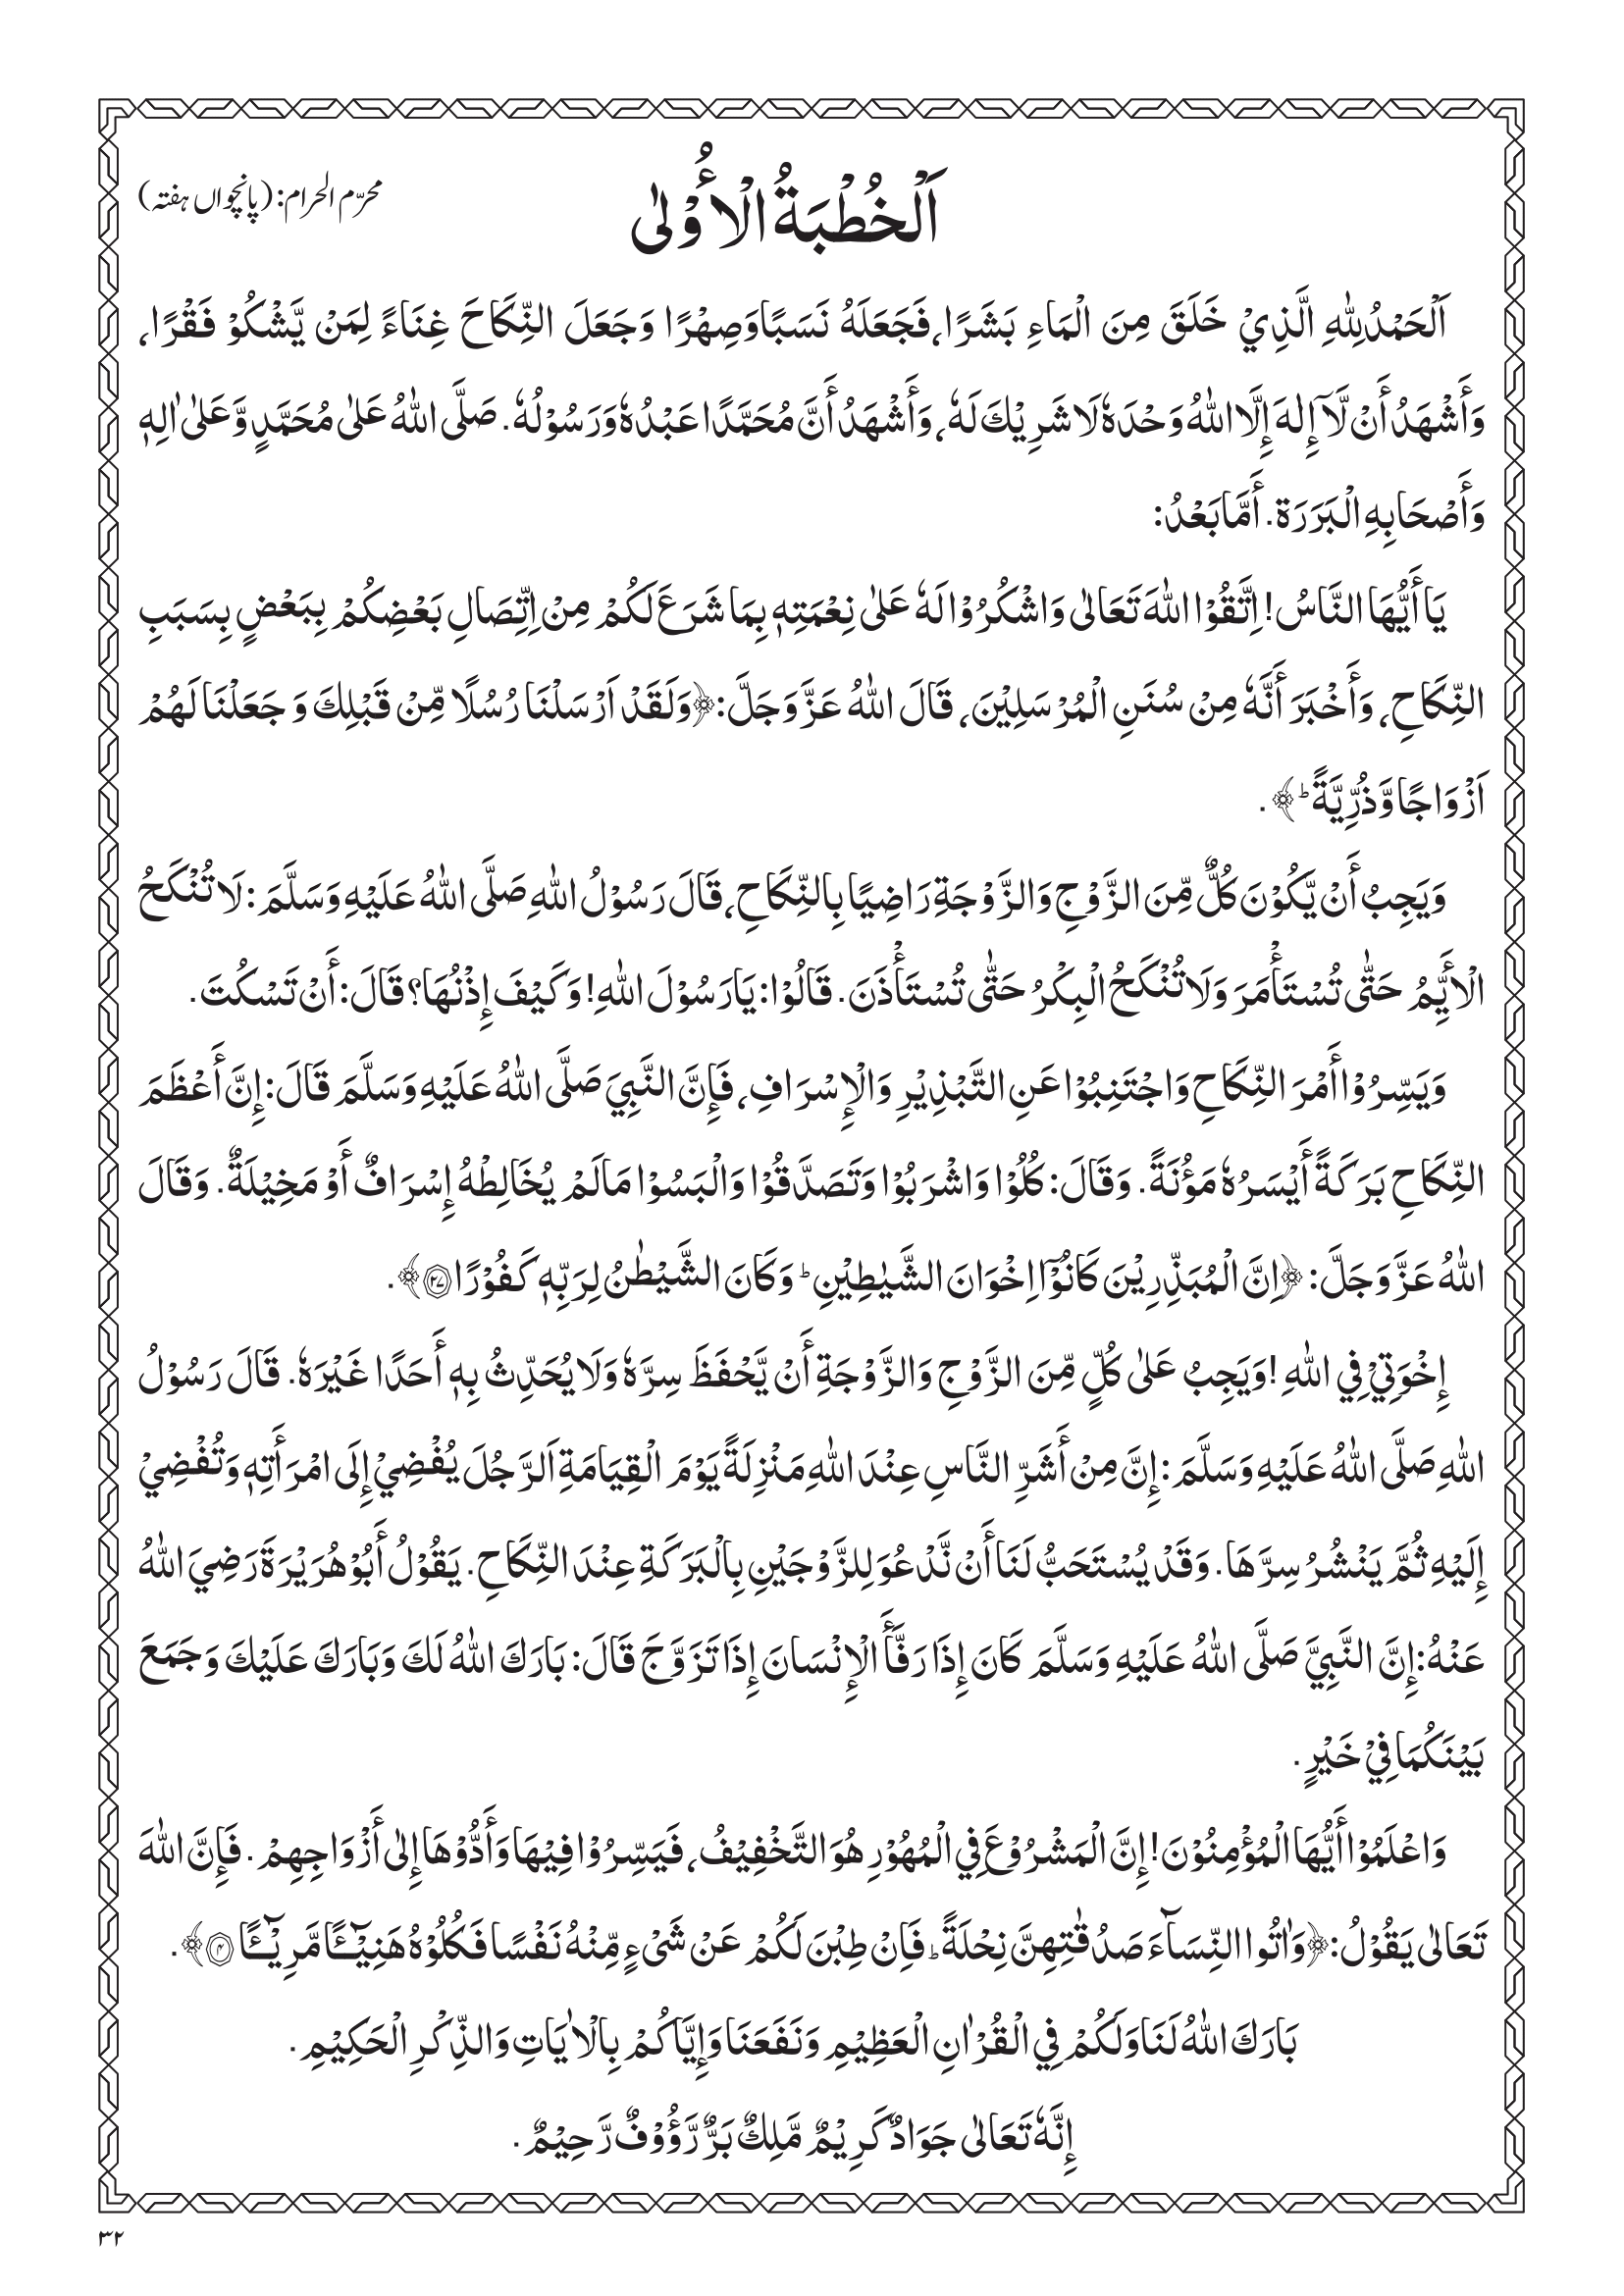 محرّم الحرام: (پانچواں ہفتہ)
اَلْخُطْبَةُ الْأُوْلٰى
اَلْحَمْدُ لِلّٰهِ الَّذِيْ خَلَقَ مِنَ الْمَاءِ بَشَرًا، فَجَعَلَهُ نَسَبًا وَصِهْرًا وَجَعَلَ النِّكَاحَ غِنَاءً لِمَنْ يَّشْكُوْ فَقْرًا،
وَأَشْهَدُ أَنْ لَّآ إِلٰهَ إِلَّا اللّٰهُ وَحْدَهٗ لَا شَرِيْكَ لَهٗ، وَأَشْهَدُ أَنَّ مُحَمَّدًا عَبْدُهٗ وَرَسُوْلُهٗ. صَلَّى اللّٰهُ عَلٰى مُحَمَّدٍ وَّعَلٰى اٰلِهٖ
وَأَصْحَابِهِ الْبَرَرَة. أَمَّا بَعْدُ:
يَا أَيُّهَا النَّاسُ! اِتَّقُوْا اللّٰهَ تَعَالٰى وَاشْكُرُوْا لَهٗ عَلٰى نِعْمَتِهٖ بِمَا شَرَعَ لَكُمْ مِنْ اِتِّصَالِ بَعْضِكُمْ بِبَعْضٍ بِسَبَبِ
النِّكَاحِ، وَأَخْبَرَ أَنَّهٗ مِنْ سُنَنِ الْمُرْسَلِيْنَ، قَالَ اللّٰهُ عَزَّ وَجَلَّ: ﴿وَلَقَدْ اَرْسَلْنَا رُسُلًا مِّنْ قَبْلِكَ وَ جَعَلْنَا لَهُمْ
اَزْوَاجًا وَّذُرِّيَّةً ؕ﴾.
وَيَجِبُ أَنْ يَّكُوْنَ كُلٌّ مِّنَ الزَّوْجِ وَالزَّوْجَةِ رَاضِيًا بِالنِّكَاحِ، قَالَ رَسُوْلُ اللّٰهِ صَلَّى اللّٰهُ عَلَيْهِ وَسَلَّمَ: لَا تُنْكَحُ
الْأَيِّمُ حَتّٰى تُسْتَأْمَرَ وَلَا تُنْكَحُ الْبِكْرُ حَتّٰى تُسْتَأْذَنَ. قَالُوْا: يَا رَسُوْلَ اللّٰهِ! وَكَيْفَ إِذْنُهَا؟ قَالَ: أَنْ تَسْكُتَ.
وَيَسِّرُوْا أَمْرَ النِّكَاحِ وَاجْتَنِبُوْا عَنِ التَّبْذِيْرِ وَالْإِسْرَافِ، فَإِنَّ النَّبِيَ صَلَّى اللّٰهُ عَلَيْهِ وَسَلَّمَ قَالَ: إِنَّ أَعْظَمَ
النِّكَاحِ بَرَكَةً أَيْسَرُهٗ مَؤُنَةً. وَقَالَ: كُلُوْا وَاشْرَبُوْا وَتَصَدَّقُوْا وَالْبَسُوْا مَا لَمْ يُخَالِطْهُ إِسْرَافٌ أَوْ مَخِيْلَةٌ. وَقَالَ
اللّٰهُ عَزَّ وَجَلَّ: ﴿اِنَّ الْمُبَذِّرِيْنَ كَانُوْٓا اِخْوَانَ الشَّيٰطِيْنِ ؕ وَكَانَ الشَّيْطٰنُ لِرَبِّهٖ كَفُوْرًا ۝۲۷﴾.
إِخْوَتِيْ فِي اللّٰهِ! وَيَجِبُ عَلٰى كُلٍّ مِّنَ الزَّوْجِ وَالزَّوْجَةِ أَنْ يَّحْفَظَ سِرَّهٗ وَلَا يُحَدِّثُ بِهٖ أَحَدًا غَيْرَهٗ. قَالَ رَسُوْلُ
اللّٰهِ صَلَّى اللّٰهُ عَلَيْهِ وَسَلَّمَ: إِنَّ مِنْ أَشَرِّ النَّاسِ عِنْدَ اللّٰهِ مَنْزِلَةً يَوْمَ الْقِيَامَةِ اَلرَّجُلَ يُفْضِيْ إِلَى امْرَأَتِهٖ وَتُفْضِيْ
إِلَيْهِ ثُمَّ يَنْشُرُ سِرَّهَا. وَقَدْ يُسْتَحَبُّ لَنَا أَنْ نَّدْعُوَ لِلزَّوْجَيْنِ بِالْبَرَكَةِ عِنْدَ النِّكَاحِ. يَقُوْلُ أَبُوْ هُرَيْرَةَ رَضِيَ اللّٰهُ
عَنْهُ: إِنَّ النَّبِيَّ صَلَّى اللّٰهُ عَلَيْهِ وَسَلَّمَ كَانَ إِذَا رَفَّأَ الْإِنْسَانَ إِذَا تَزَوَّجَ قَالَ: بَارَكَ اللّٰهُ لَكَ وَبَارَكَ عَلَيْكَ وَجَمَعَ
بَيْنَكُمَا فِيْ خَيْرٍ.
وَاعْلَمُوْا أَيُّهَا الْمُؤْمِنُوْنَ! إِنَّ الْمَشْرُوْعَ فِي الْمُهُوْرِ هُوَ التَّخْفِيْفُ، فَيَسِّرُوْا فِيْهَا وَأَدُّوْهَا إِلٰى أَزْوَاجِهِمْ. فَإِنَّ اللّٰهَ
تَعَالٰى يَقُوْلُ: ﴿وَاٰتُوا النِّسَآءَ صَدُقٰتِهِنَّ نِحْلَةً ؕ فَاِنْ طِبْنَ لَكُمْ عَنْ شَیْءٍ مِّنْهُ نَفْسًا فَكُلُوْهُ هَنِيْٓـًٔا مَّرِيْٓـًٔا ۝۴﴾.
بَارَكَ اللّٰهُ لَنَا وَلَكُمْ فِي الْقُرْاٰنِ الْعَظِيْمِ وَنَفَعَنَا وَإِيَّاكُمْ بِالْاٰيَاتِ وَالذِّكْرِ الْحَكِيْمِ.
إِنَّهٗ تَعَالٰى جَوَادٌ كَرِيْمٌ مَّلِكٌ بَرٌّ رَّؤُوْفٌ رَّحِيْمٌ.
۳۲